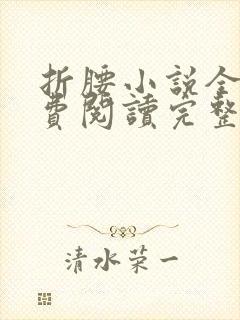 折腰小説全
費閱讀完整
清水荣一